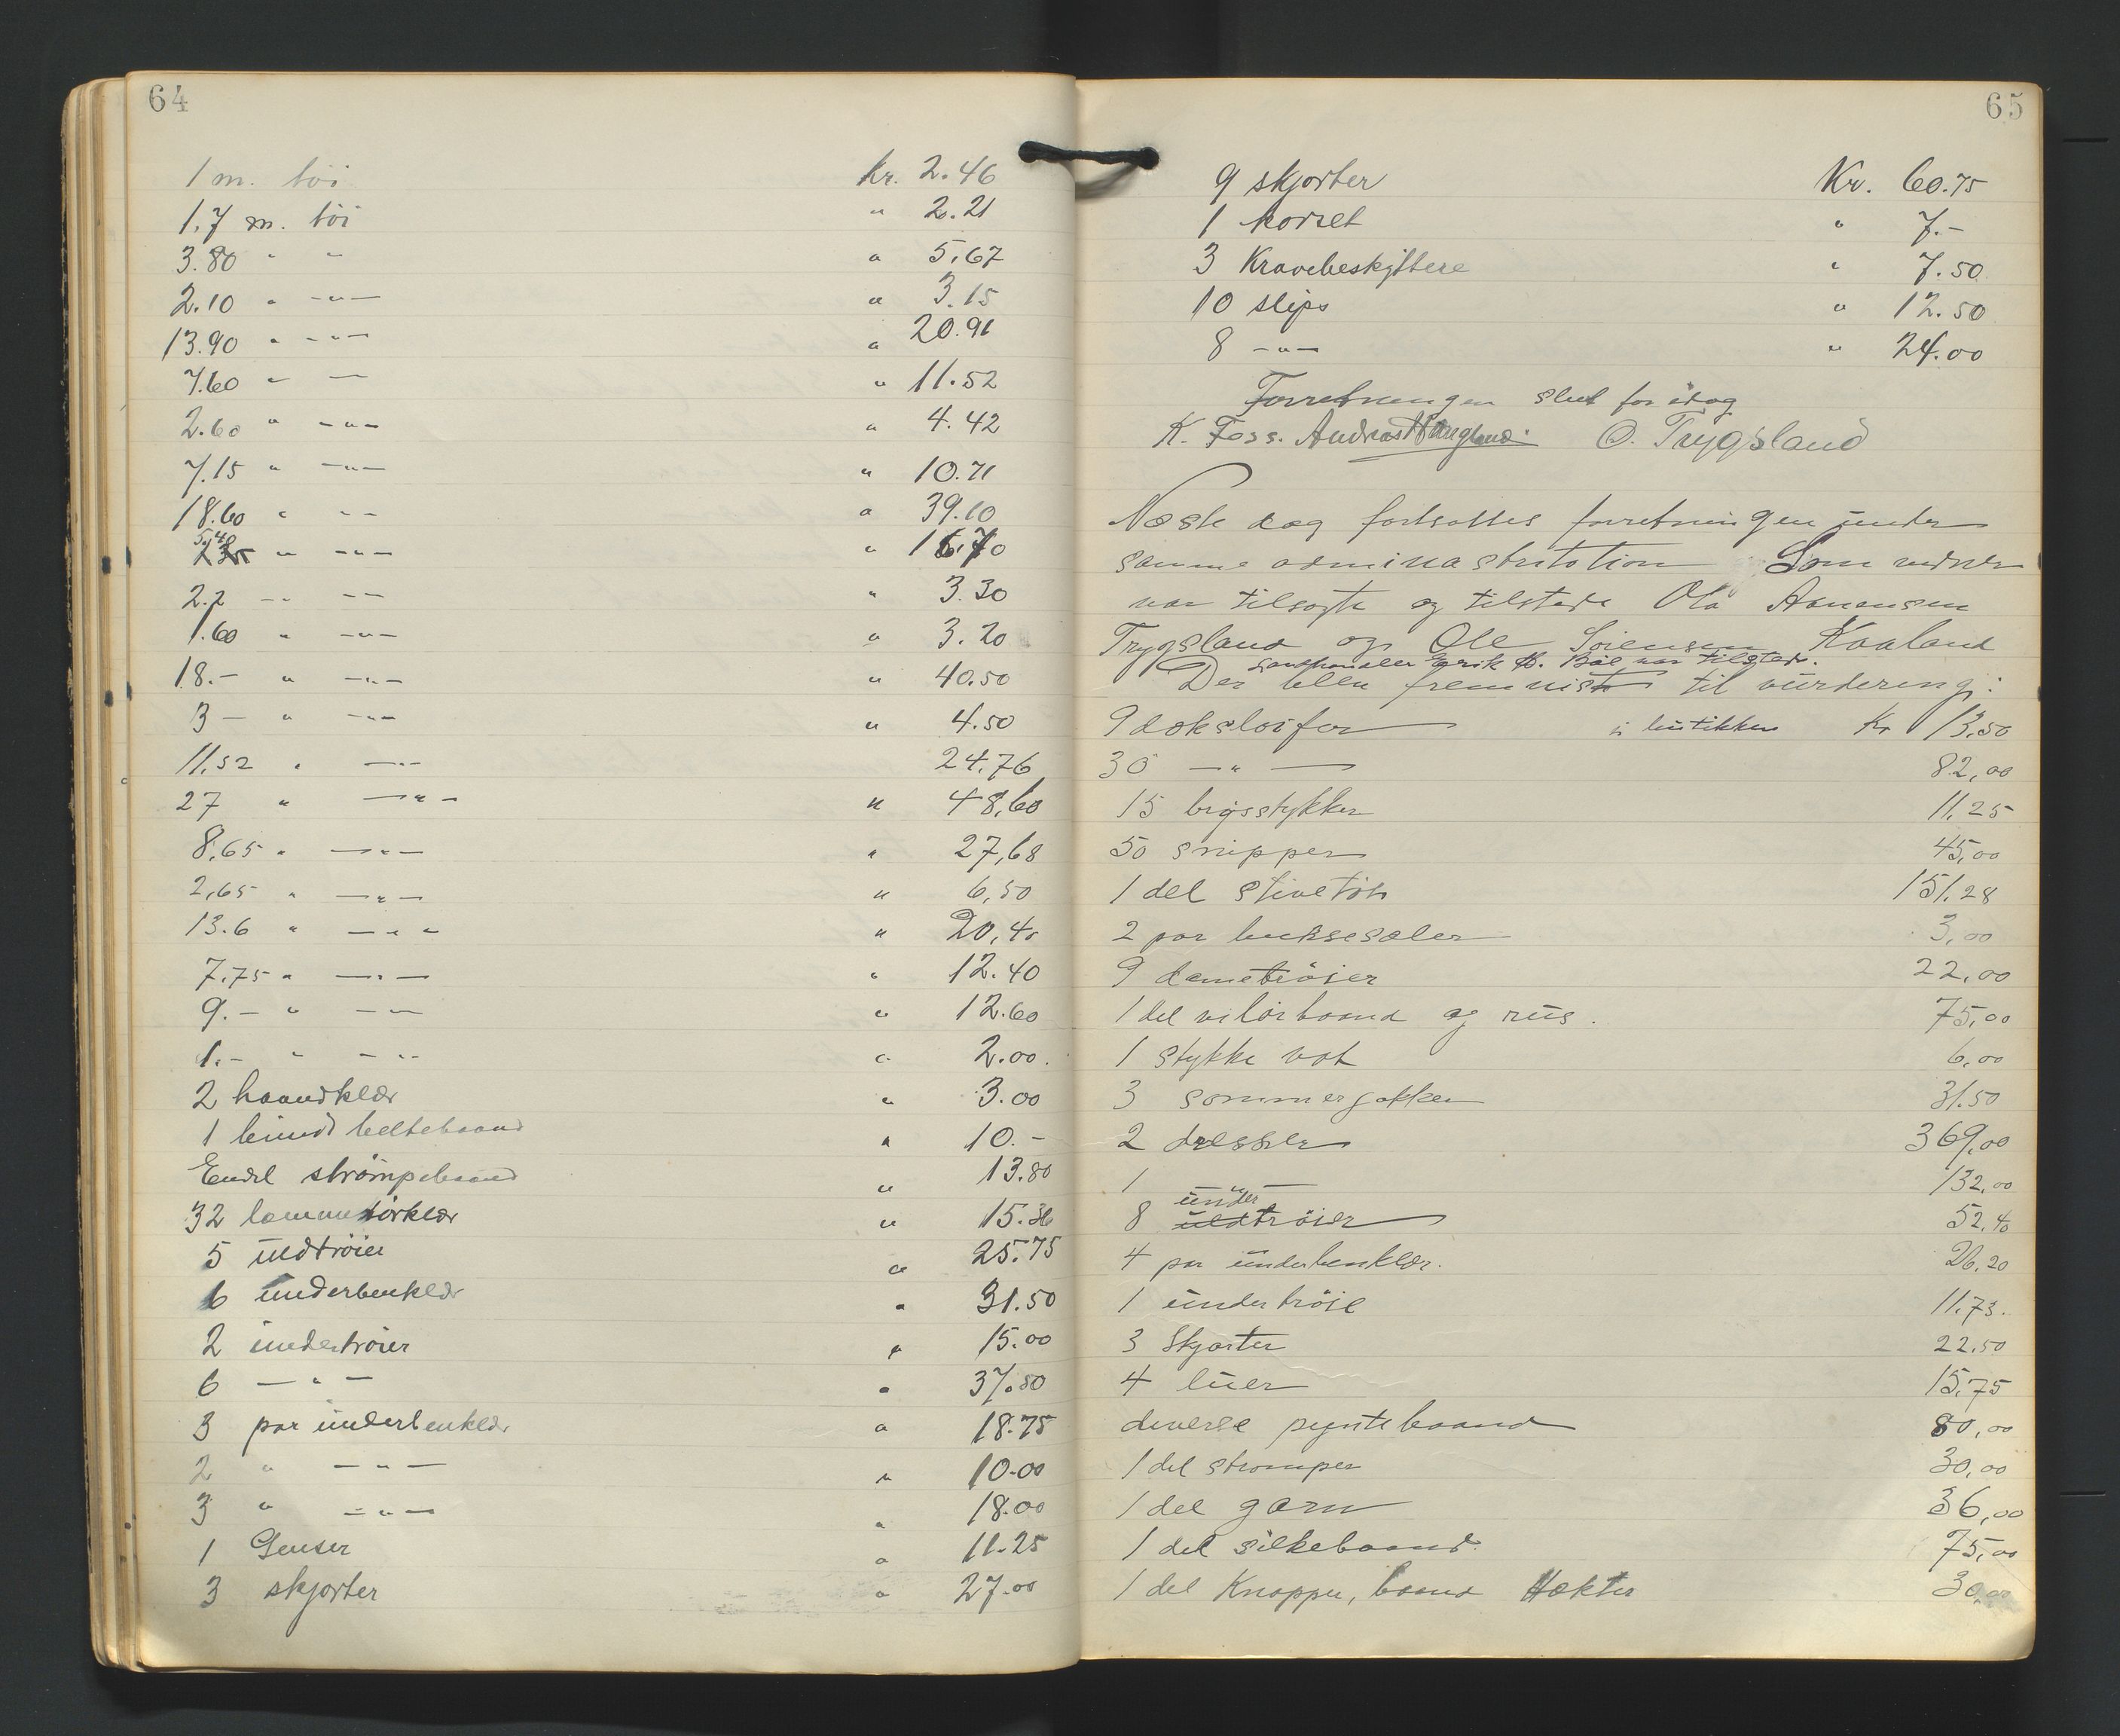 64
1 m. töi kr. 2.46
1,7 m. töi " 2.21
3.80 " " " 5,67
2.10 " —"— " 3.15
13.90 " —"— " 20.91
7.60 " — " 11.52
2.60 " —"— " 4.42
7.15 " —"— " 10.71
18.60 " —"— " 39.10
5.40 " —"— " 16.70
2.2 —"— " 3.30
1.60 " —"— " 3.20
18.- " —"— " 40.50
3 — " —"— " 4.50
11,52 " —"— 24,76
27 " —"— " 48,60
8,65 " —"— " 27,68
2,65 " —"— " 6,50
13.6 " —"— " 20,40
7.75 " —"— " 12.40
9.— " —"— " 12.60
1.— " —"— " 2.00.
2 haandklær " 3.00
1 bundt beltebaand " 10.-
Endel strömpebaand " 13.80
32 lommetörklær " 15.36
5 uldtröier " 25.75
6 underbenklær " 31.50
2 undertröier " 15.00
6 —"— " 37.50
3 par underbenklær " 18.75
2 " —"— " 10.00
3 " —"— " 18.00
1 Genser " 11.25
3 skjorter " 27.00
65
9 skjorter Kr. 60.75
1 korset " 7.-
3 Kravebeskyttere " 7.50
10 slips " 12.50
8 —"— " 24.00
Forretningen slut for idag
K. Foss. Andreas Haugland. O. Trygsland
Næste dag fortsattes forretningen under
samme adminastritation Som vidner
var tilsagte og tilstede Ola Asmensen
Trygsland og Ole Sörensen Kaaland
Landhandler Erik H. Böe var tilstede.
Der blev fremvist til vurdering:
9 dökslöifer i butikken Kr 13,50
30 —"— 82,00
15 brysstykker 11,25
50 snipper 45,00
1 del stivetöi 151,28
2 par buksesæler 3,00
9 dametröier 22,00
1 del velörbaand og rus. 75,00
1 stykke vat 6,00
3 sommerjakker 31.50
2 dresser 369,00
1 —"— 132,00
under
8 uldtröier 52,40
4 par underbenklær. 26,20
1 undertröie 11,73.
3 Skjorter 22,50
4 luer 15,75
diverse pyntebaand 80,00
1 del strømper 30,00
1 del garn 36,00
1 del silkebaand. 75,00
1 del Knapper, baand Hækter 30,00